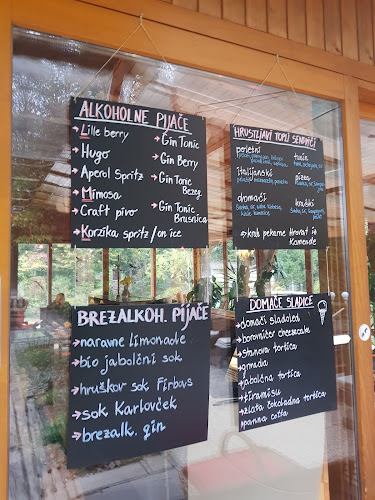 ALKOHOLNE PIJAČE
Lille berry
Hugo
Aperol Spritz
Mimosa
Craft pivo
Korzika spritz/on ice
Gin Tonic
Gin Berry
Gin Tonic
Bezeg
Gin Tonic
Brusnica
HRUSTLJAVI TOPLI SENDVIČI
poletni
tuna
italijanski
pizza
domači
kraški
kruh pekarne Hrovat iz
Kamende
BREZALKOH. PIJAČE
naravne limonade
bio jabolčni sok
hruškov sok Firbas
sok Karlovček
brezalk. gin
DOMAČE SLADICE
domači sladoled
borovničev cheesecake
skutna tortica
gmajna
jabolčna tortica
tiramisu
zlata čokoladna tortica
panna cotta